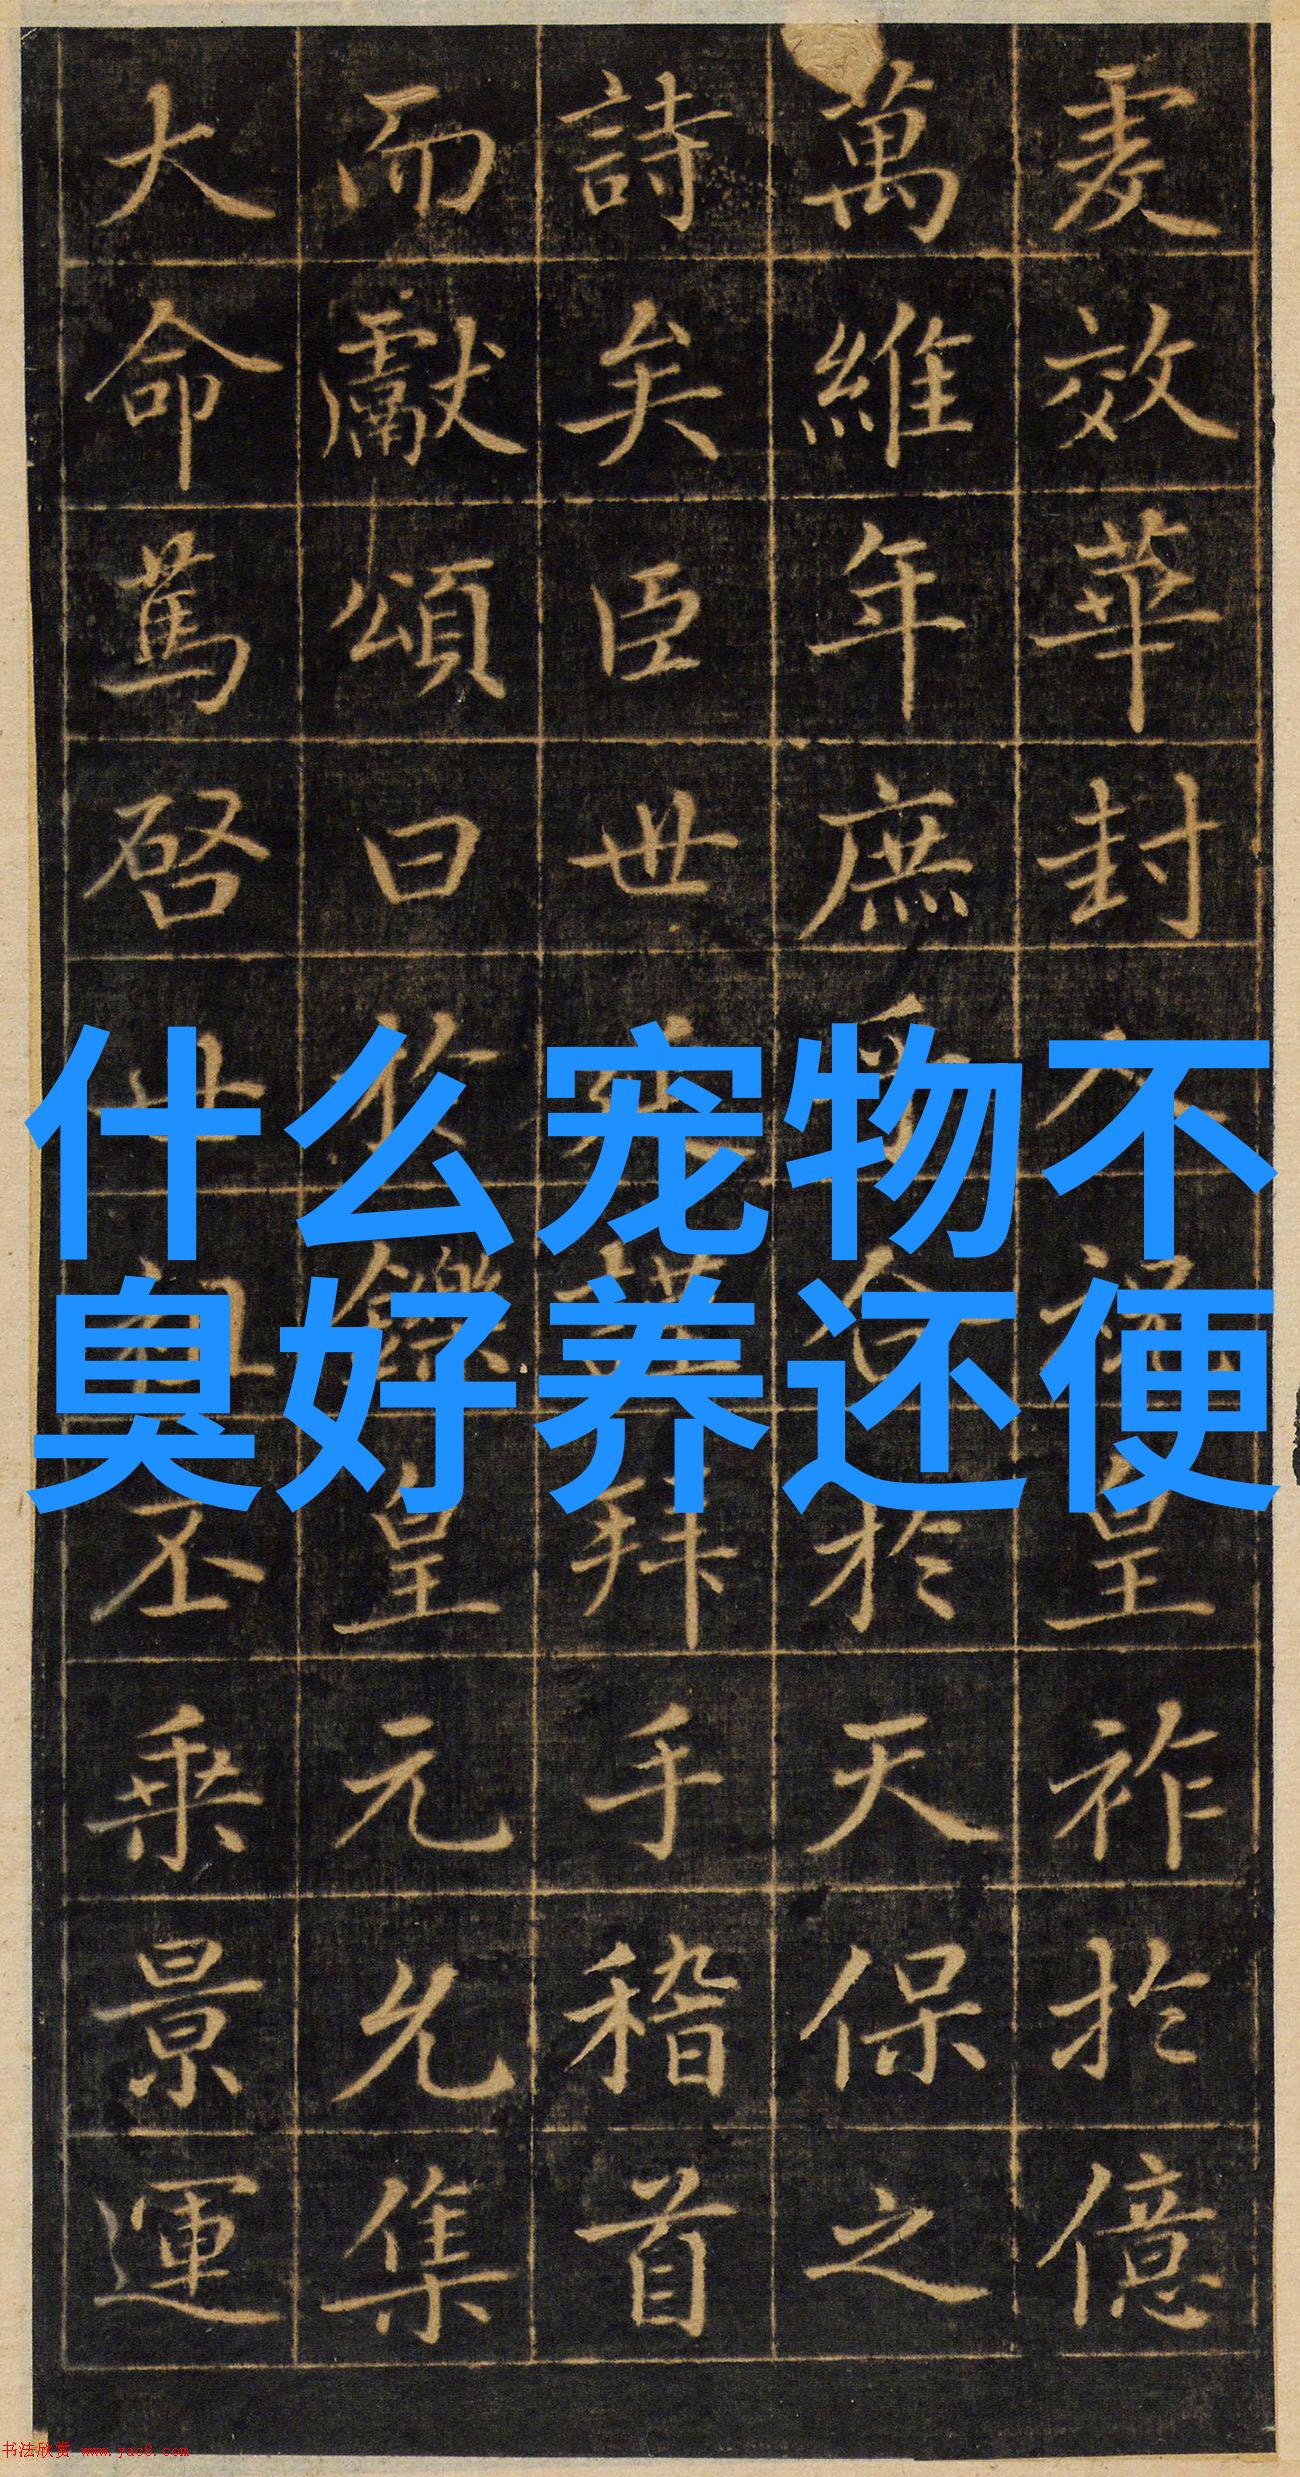 效華封人祝皇祚於億
萬維年庶乎合於天保之
詩矣臣世謹拜手稽首
而獻頌曰於鑠皇元允集
大命篤啓世祖丕乘景運
什么宠物不
臭好养还便
书法欣赏 www.yac8.com